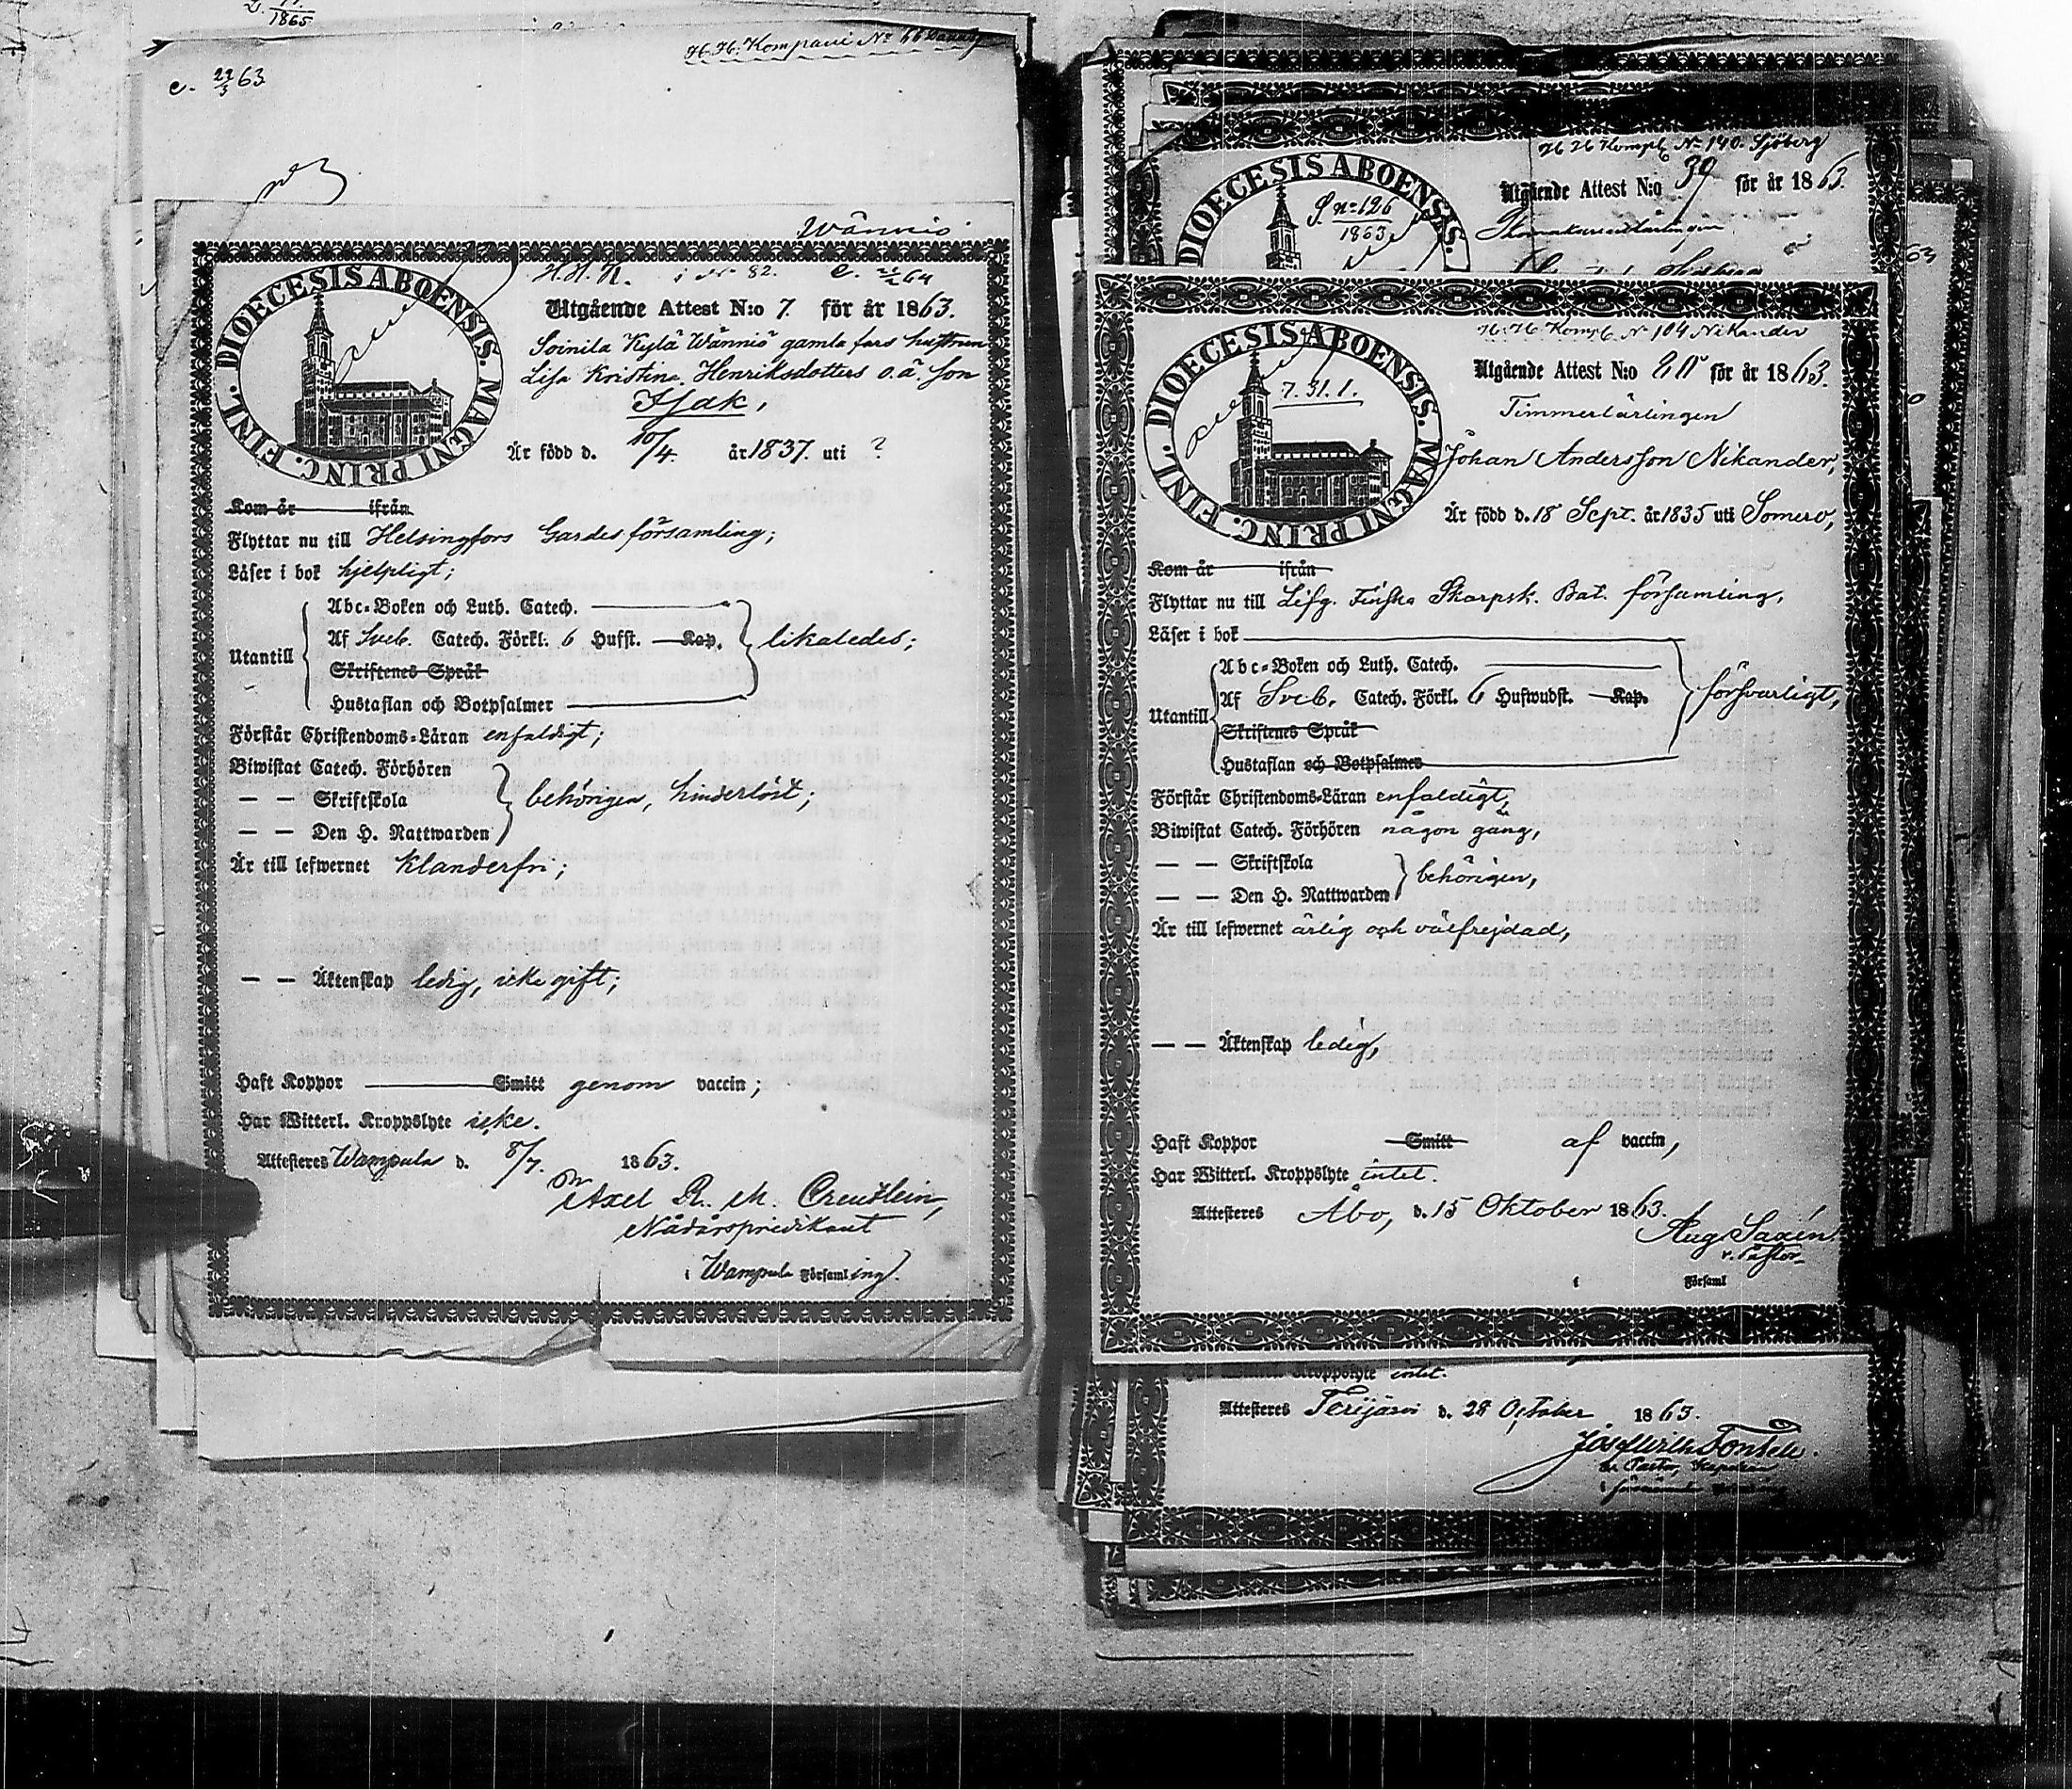 1865
H. H. Kompani No 66
c. 22/3 63
Wännis
DIOECESIS ABOENSIS. MAGNI PRINC. FINL.
H. H. K. i No 82. c. 64
Utgående Attest N:o 7. för år 1863.
Soinila Kylä Wännis gamla fars hustrun
Lisa Kristina Henriksdotters o. ä. son
Isak,
Är född d. 10/4. år 1837. uti ?
Kom år ifrån
Flyttar nu till Helsingfors Gardes församling;
Läser i bok hjelpligt;
Utantill
Abc-Boken och Luth. Catech.
Af Sveb. Catech. Förkl. 6 Hufst. Kap.
Skriftenes Språk
Hustaflan och Botpsalmer
likaledes;
Förstår Christendoms-Läran enfaldigt;
Biwistat Catech. Förhören
— — Skriftskola
— — Den H. Nattwarden
behörigen, hinderlöst;
Är till lefwernet klanderfri;
— — Äktenskap ledig, icke gift;
Haft Koppor Smitt genom vaccin;
Har Witterl. Kroppslyte icke.
Attesteras Wampula d. 8/7. 1863.
Axel R. M.
Nådårspredikant
i Wampula Församling.
H H Komp No 140. Sjöberg
DIOECESIS ABOENSIS.
S. no 126
1863
Utgående Attest N:o 39 för år 1863.
H. H. Komp No 104 Nikander
DIOECESIS ABOENSIS. MAGNI PRINC. FINL.
7. 31. 1.
Utgående Attest N:o för år 1863.
Timmerlärlingen
Johan Andersson Nikander,
Är född d. 18 Sept. år 1835 uti Somero,
Kom år ifrån
Flyttar nu till Lifg. Finska Skarpsk. Bat. församling,
Läser i bok
Utantill
Abc-Boken och Luth. Catech.
Af Sveb. Catech. Förkl. 6 Hufwudst. Kap.
Skriftenes Språk
Hustaflan och Botpsalmer
försvarligt,
Förstår Christendoms-Läran enfaldigt,
Biwistat Catech. Förhören någon gång,
— — Skriftskola
— — Den H. Nattwarden
behörigen,
Är till lefwernet ärlig och välfrejdad,
— — Äktenskap ledig,
Haft Koppor Smitt af vaccin,
Har Witterl. Kroppslyte intet.
Attesteras Åbo, d. 15 Oktober 1863.
Aug. Saxén
v. Pastor
i Församl
Kroppslyte intet.
Attesteras Terijärvi d. October 1863.